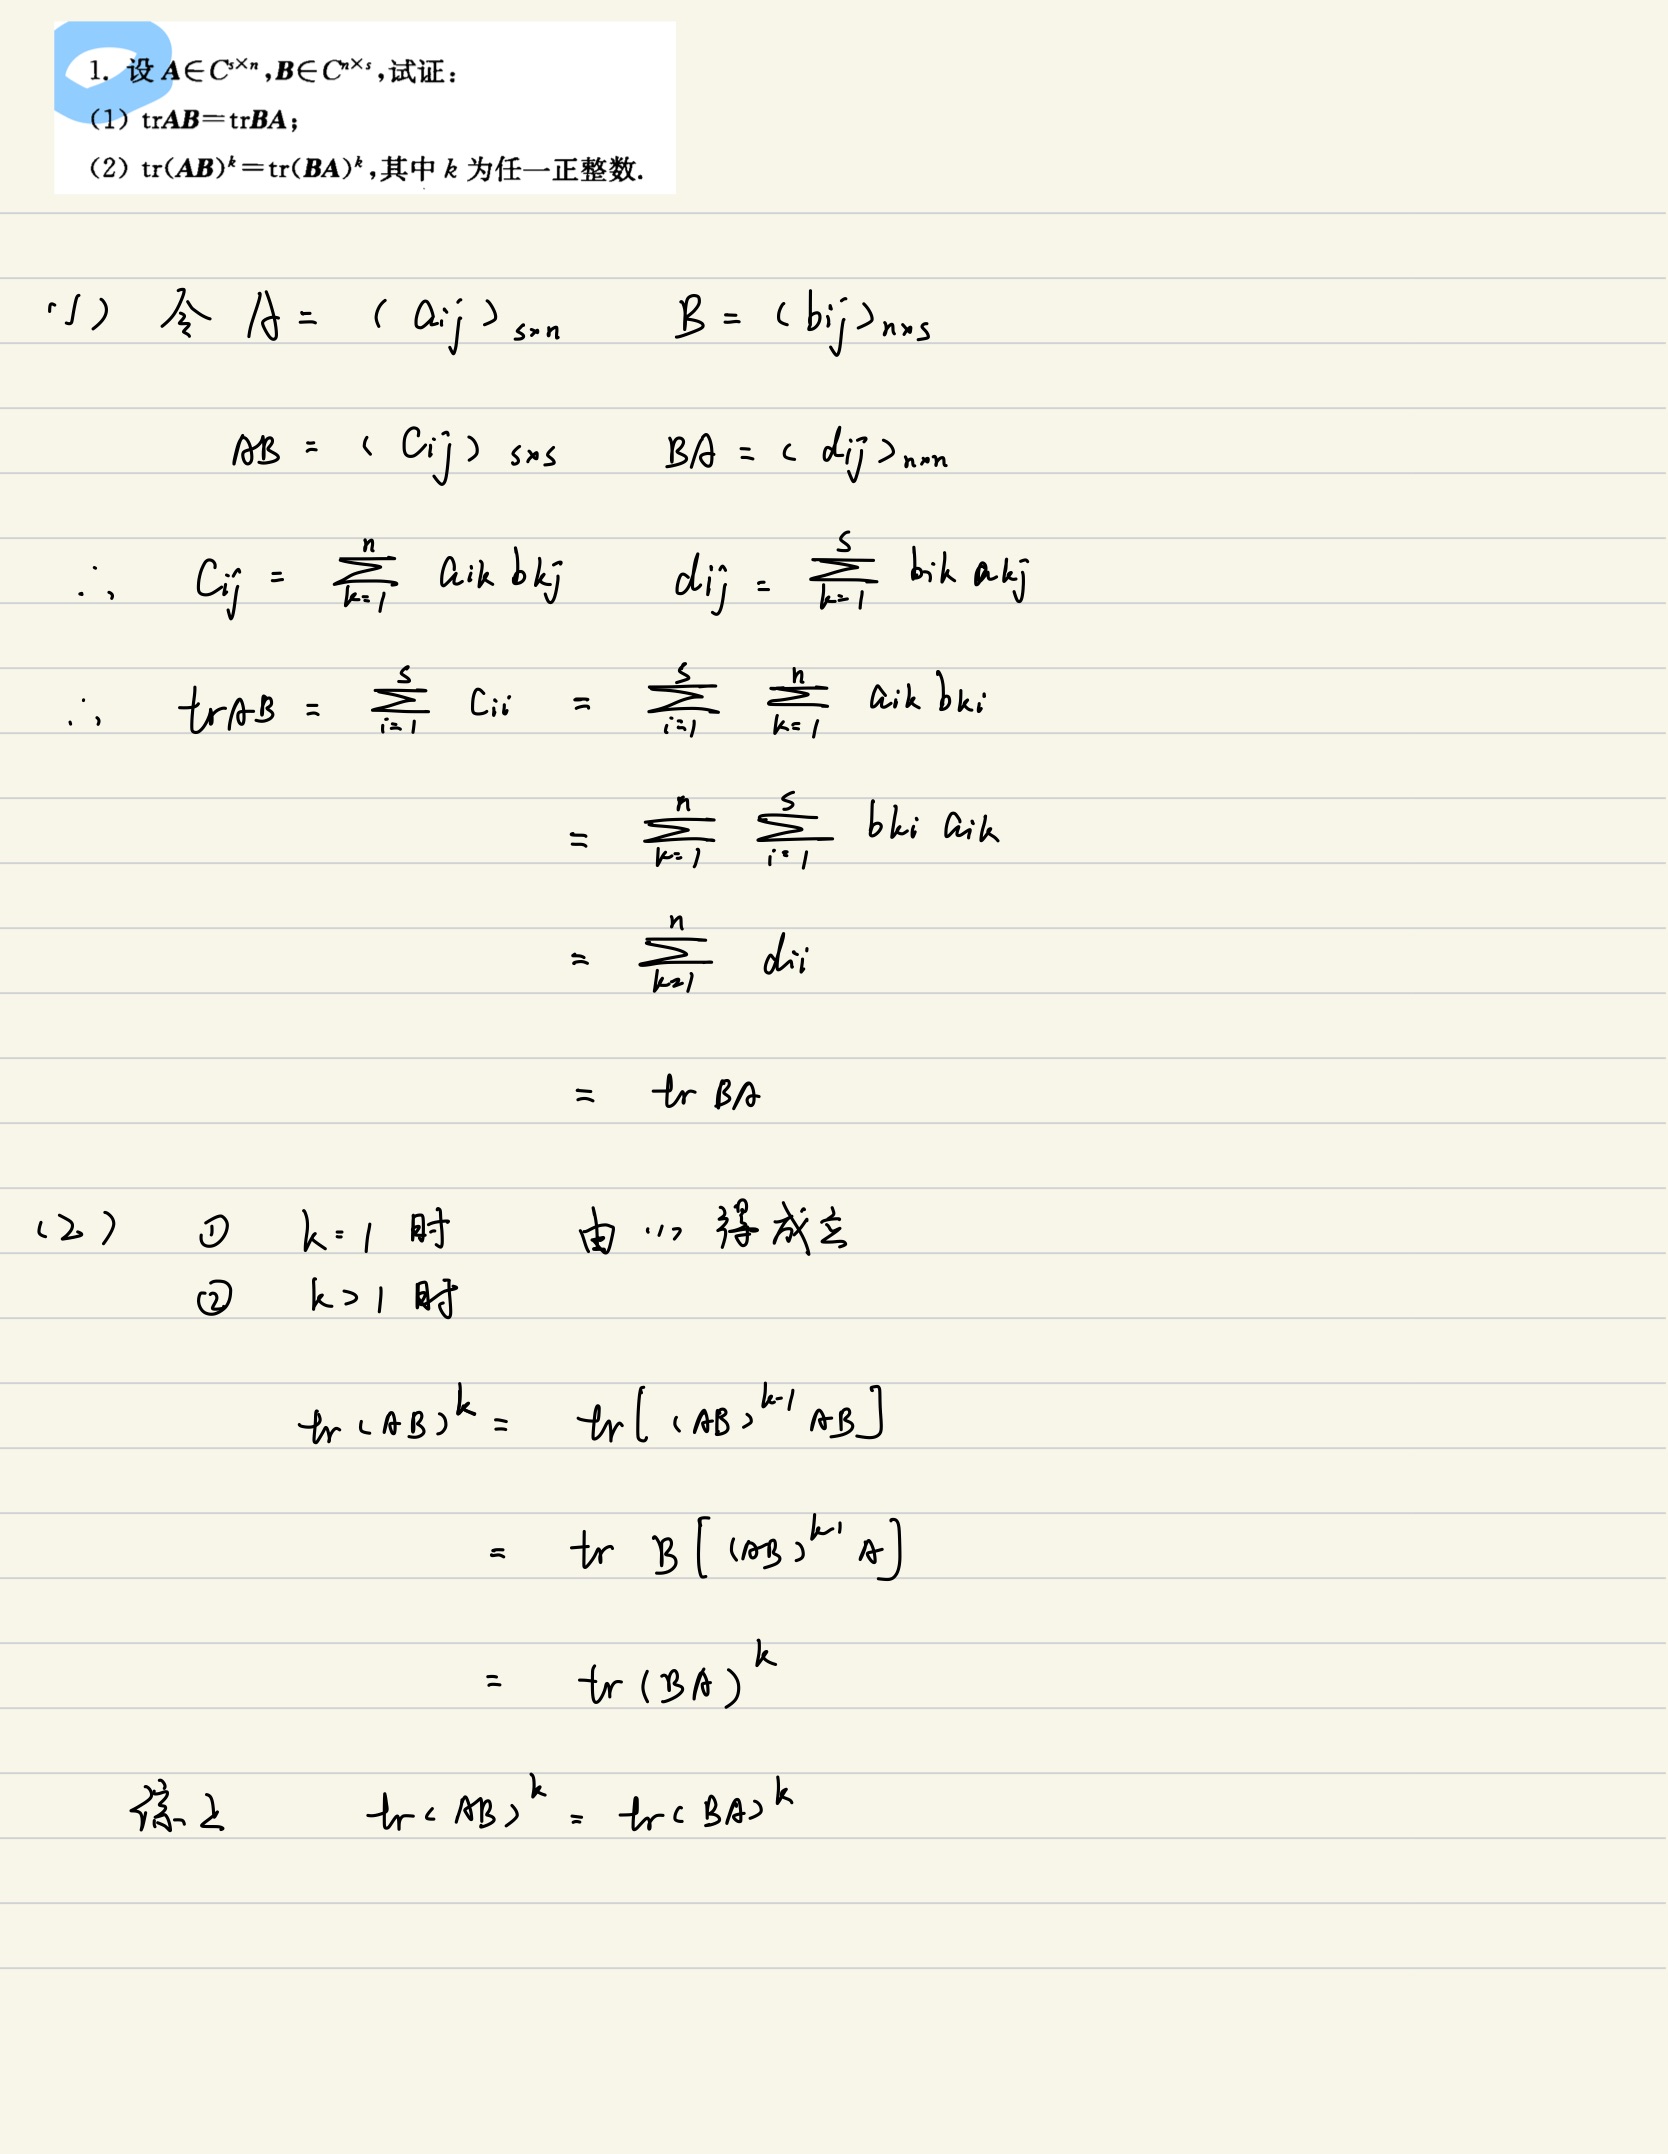 1. 设 A∈C^{s×n},B∈C^{n×s},试证:
(1) trAB=trBA;
(2) tr(AB)^k=tr(BA)^k,其中 k 为任一正整数.
(1) 令 A = (aij)s×n B = (bij)n×s
AB = (Cij)s×s BA = (dij)n×n
∴ Cij = \sum_{k=1}^{n} aik bkj dij = \sum_{k=1}^{s} bik akj
∴ trAB = \sum_{i=1}^{s} Cii = \sum_{i=1}^{s} \sum_{k=1}^{n} aik bki
= \sum_{k=1}^{n} \sum_{i=1}^{s} bki aik
= \sum_{k=1}^{n} dii
= tr BA
(2) ① k=1 时 由(1)得成立
② k>1 时
tr(AB)^k = tr[(AB)^{k-1} AB]
= tr B[(AB)^{k-1} A]
= tr(BA)^k
综上 tr(AB)^k = tr(BA)^k